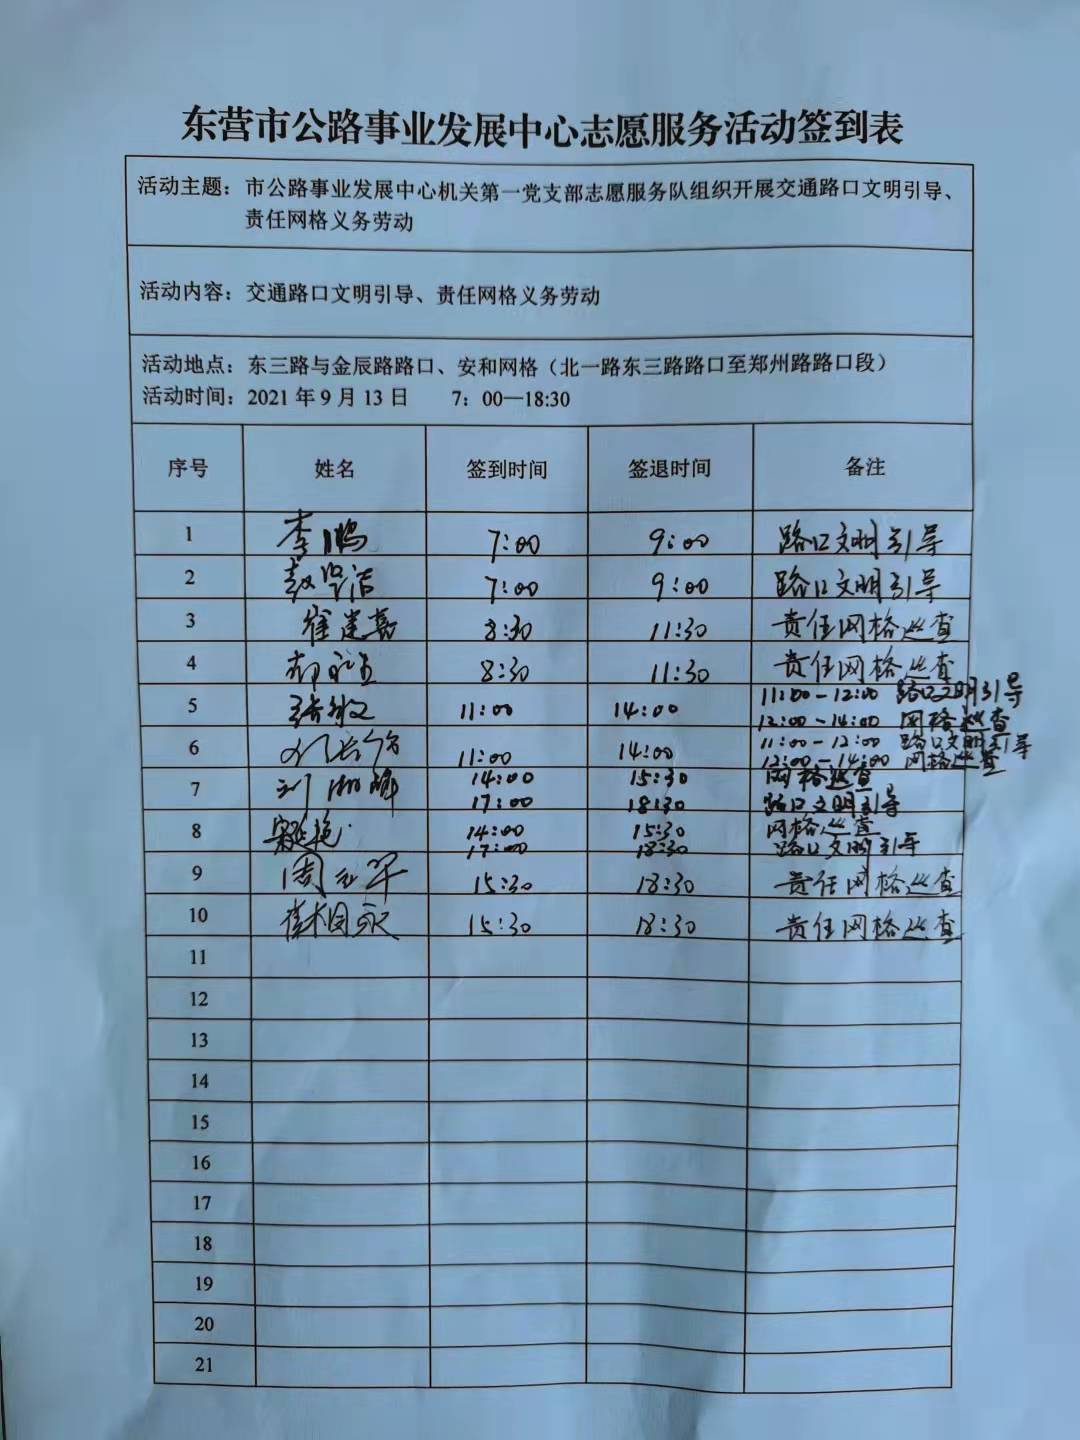 东营市公路事业发展中心志愿服务活动签到表
活动主题：市公路事业发展中心机关第一党支部志愿服务队组织开展交通路口文明引导、
责任网格义务劳动
活动内容：交通路口文明引导、责任网格义务劳动
活动地点：东三路与金辰路路口、安和网格（北一路东三路路口至郑州路路口段）
活动时间：2021年9月13日 7：00—18:30
序号 姓名 签到时间 签退时间 备注
1 李鹏 7:00 9:00 路口文明引导
2 7:00 9:00 路口文明引导
3 崔建嘉 8:30 11:30 责任网格巡查
4 8:30 11:30 责任网格巡查
11:00-12:00 路口文明引导
5 张敏 11:00 14:00
12:00-14:00 网格巡查
11:00-12:00 路口文明引导
6 11:00 14:00
12:00-14:00 网格巡查
7 刘 14:00 15:30 网格巡查
17:00 18:30 路口文明引导
8 14:00 15:30 网格巡查
17:00 18:30 路口文明引导
9 周 15:30 18:30 责任网格巡查
10 15:30 18:30 责任网格巡查
11
12
13
14
15
16
17
18
19
20
21